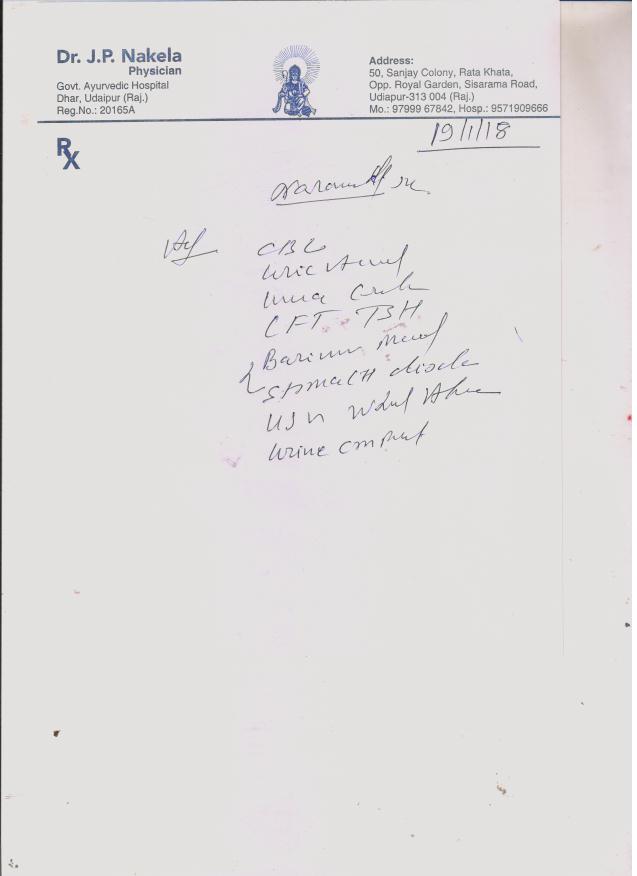 Dr. J.P. Nakela
Physician
Govt. Ayurvedic Hospital
Dhar, Udaipur (Raj.)
Reg.No.: 20165A
Address:
50, Sanjay Colony, Rata Khata,
Opp. Royal Garden, Sisarama Road,
Udiapur-313 004 (Raj.)
Mo.: 97999 67842, Hosp.: 9571909666
19/1/18
Rx
CBC
Uric
LFT TSH
Barium meal
Stomach
Urine